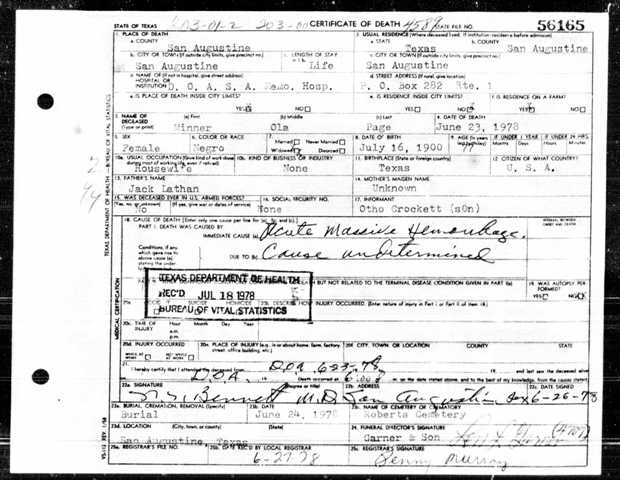 STATE OF TEXAS CERTIFICATE OF DEATH 4589 STATE FILE NO. 56165
1. PLACE OF DEATH
a. COUNTY
San Augustine
2. USUAL RESIDENCE (Where deceased lived. If institution: residence before admission)
a. STATE
Texas
b. COUNTY
San Augustine
b. CITY OR TOWN (If outside city limits, give precinct no.)
San Augustine
c. LENGTH OF STAY
Life
c. CITY OR TOWN (If outside city limits, give precinct no.)
San Augustine
d. NAME OF (If not in hospital, give street address)
HOSPITAL OR
INSTITUTION D. O. A. S. A. Memo. Hosp.
d. STREET ADDRESS (If rural, give location)
P. O. Box 282 Rte. 1
e. IS PLACE OF DEATH INSIDE CITY LIMITS?
YES NO
e. IS RESIDENCE INSIDE CITY LIMITS?
YES NO
f. IS RESIDENCE ON A FARM?
YES NO
3. NAME OF DECEASED
(Type or print)
(a) First
Winner
(b) Middle
Ola
(c) Last
Page
4. DATE OF DEATH
June 23, 1978
5. SEX
Female
6. COLOR OR RACE
Negro
7. Married Never Married
Widowed Divorced
8. DATE OF BIRTH
July 16, 1900
IF UNDER 1 YEAR
IF UNDER 24 HRS.
10a. USUAL OCCUPATION (Give kind of work done during most of working life, even if retired)
Housewife
10b. KIND OF BUSINESS OR INDUSTRY
None
11. BIRTHPLACE (State or foreign country)
Texas
12. CITIZEN OF WHAT COUNTRY?
U. S. A.
13. FATHER'S NAME
Jack Lathan
14. MOTHER'S MAIDEN NAME
Unknown
15. WAS DECEASED EVER IN U.S. ARMED FORCES?
(Yes, no, or unknown) (If yes, give war or dates of service)
No
16. SOCIAL SECURITY NO.
None
17. INFORMANT
Otho Crockett (son)
18. CAUSE OF DEATH [Enter only one cause per line for (a), (b), and (c).]
PART I. DEATH WAS CAUSED BY:
IMMEDIATE CAUSE (a) Acute Massive Hemorrhage.
INTERVAL BETWEEN ONSET AND DEATH
Conditions, if any which gave rise to above cause (a) stating the under
DUE TO (b) Cause undetermined
BUT NOT RELATED TO THE TERMINAL DISEASE CONDITION GIVEN IN PART I(a)
19. WAS AUTOPSY PERFORMED?
YES NO
TEXAS DEPARTMENT OF HEALTH
REC'D JUL 18 1978
BUREAU OF VITAL STATISTICS
20b. DESCRIBE HOW INJURY OCCURRED. (Enter nature of injury in Part I or Part II of item 18.)
20c. TIME OF INJURY
Hour Month Day Year
a.m.
p.m.
20d. INJURY OCCURRED
WHILE AT WORK NOT WHILE AT WORK
20e. PLACE OF INJURY (e.g. in or about home, farm, factory, street, office building, etc.)
20f. CITY, TOWN, OR LOCATION COUNTY STATE
21. I hereby certify that I attended the deceased from D.O.A. 6-23-78, and last saw the deceased alive
D.O.A. Death occurred at 6:00 on the date stated above, and to the best of my knowledge, from the causes stated.
22a. SIGNATURE (Degree or title)
Bennett M.D.
22b. ADDRESS
San Augustine
22c. DATE SIGNED
6-26-78
23a. BURIAL, CREMATION, REMOVAL (Specify)
Burial
23b. DATE
June 24, 1978
23c. NAME OF CEMETERY OR CREMATORY
Roberts Cemetery
23d. LOCATION (City, town, or county) (State)
San Augustine, Texas
24. FUNERAL DIRECTOR'S SIGNATURE
Garner & Son
25a. REGISTRAR'S FILE NO.
25b. DATE REC'D BY LOCAL REGISTRAR
6-27-78
25c. REGISTRAR'S SIGNATURE
Jenny Murray
TEXAS DEPARTMENT OF HEALTH — BUREAU OF VITAL STATISTICS
MEDICAL CERTIFICATION